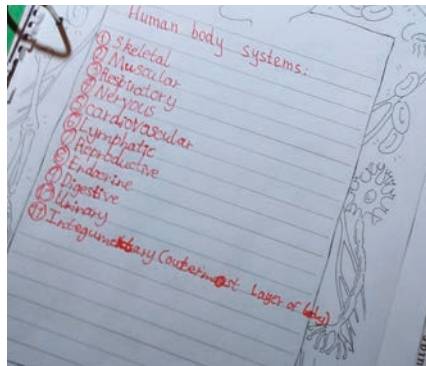 Human body systems:
① Skeletal
② Muscular
③ Respiratory
④ Nervous
⑤ cardiovascular
⑥ Lymphatic
⑦ Reproductive
⑧ Endocrine
⑨ Digestive
⑩ Urinary
⑪ Integumentary (outermost Layer of body)